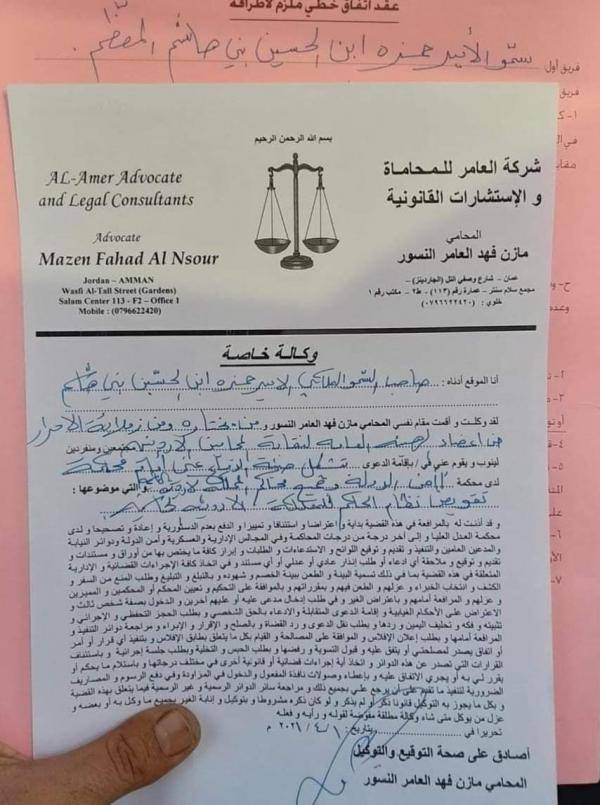 عقد اتفاق خطي ملزم لأطرافه
فريق أول سمو الأمير حمزه ابن الحسين بني هاشم المعظم.
فريق
١- ك
في ال
مقاب
بسم الله الرحمن الرحيم
AL-Amer Advocate
and Legal Consultants
Advocate
Mazen Fahad Al Nsour
Jordan – AMMAN
Wasfi Al-Tall Street (Gardens)
Salam Center 113 - F2 – Office 1
Mobile : (0796622420)
شركة العامر للمحاماة
و الإستشارات القانونية
المحامي
مازن فهد العامر النسور
عمان - شارع وصفي التل (الجاردينز) -
مجمع سلام سنتر - عمارة رقم (١١٣) - ط٢ - مكتب رقم ١
خلوي : (٠٧٩٦٦٢٢٤٢٠)
وكالة خاصة
أنا الموقع أدناه : صاحب السمو الملكي الامير حمزه ابن الحسين بني هاشم
لقد وكلت و أقمت مقام نفسي المحامي مازن فهد العامر النسور و من يختاره ومن زملائه الأحرار
من اعضاء الهيئه العامه لنقابة المحامين الاردنيين مجتمعين ومنفردين
لينوب و يقوم عني في / بإقامة الدعوى
لدى محكمة أمن الدولة و محاكم المملكه الاردنيه و التي موضوعها :
تقويض نظام الحكم للمملكة الاردنية
و قد أذنت له بالمرافعة في هذه القضية بداية و إعتراضا و استئنافا و تمييزا و الدفع بعدم الدستورية و إعادة و تصحيحا و لدى
محكمة العدل العليا و إلى آخر درجة من درجات المحاكمة و في المجالس الإدارية والعسكرية و أمن الدولة ودوائر النيابة
والمدعين العامين والتنفيذ و تقديم و توقيع اللوائح و الاستدعاءات و الطلبات و إبراز كافة ما يختص بها من أوراق و مستندات و
تقديم و توقيع و ملاحقة أي ادعاء أو طلب إنذار عادي أو عدلي أو أي مستند و في اتخاذ كافة الإجراءات القضائية و الإدارية
المتعلقة في هذه القضية بما في ذلك تسمية البينة و الطعن ببينة الخصم و شهوده و بالتبلغ و التبليغ وطلب المنع من السفر و
الكشف و انتخاب الخبراء و عزلهم و الطعن فيهم و بمقرراتهم و بالموافقة على التحكيم و تعيين المحكم أو المحكمين و المميزين
و عزلهم و المرافعة أمامهم و باعتراض الغير و في طلب إدخال مدعى عليه أو عليهم آخرين و الدخول بصفة شخص ثالث و
الاعتراض على الأحكام الغيابية و إقامة الدعوى المتقابلة والادعاء بالحق الشخصي و بطلب الحجز التحفظي و الإجرائي و
تثبيته و فكه و تحليف اليمين و ردها و بطلب نقل الدعوى و رد القضاة و بالصلح و الإقرار و الإبراء و مراجعة دوائر التنفيذ و
المرافعة أمامها و بطلب إعلان الإفلاس و الموافقة على المصالحة و القيام بكل ما يتعلق بطابق الإفلاس و بتنفيذ أي قرار أو أمر
أو اتفاق يصدر لمصلحتي أو يتفق عليه و قبول التسوية و رفضها و بطلب الحبس و التخلية وبطلب جلسة إجرائية و باستئناف
القرارات التي تصدر عن هذه الدوائر و اتخاذ أية إجراءات قضائية أو قانونية أخرى في مختلف درجاتها و باستلام ما يحكم أو
يقرر لي به أو يجري الاتفاق عليه و بإعطاء وصولات نافذة المفعول و الدخول في المزاودة وفي دفع الرسوم و المصاريف
الضرورية للتنفيذ ما تقيم على أن يرجع علي بجميع ذلك و مراجعة سائر الدوائر الرسمية و غير الرسمية فيما يتعلق بهذه القضية
و بكل ما يجوز به التوكيل قانونا ذكر أو لم يذكر و لو كان ذكره مشروطا و بتوكيل و إنابة الغير بجميع ما وكل به أو بعضه و
عزل من يوكل متى شاء وكالة مطلقة مفوضة لقوله و رأيه و فعله
تحريرا في بتاريخ : ١ / ٤ / ٢٠٢١ م
أصادق على صحة التوقيع والتوكيل
المحامي مازن فهد العامر النسور